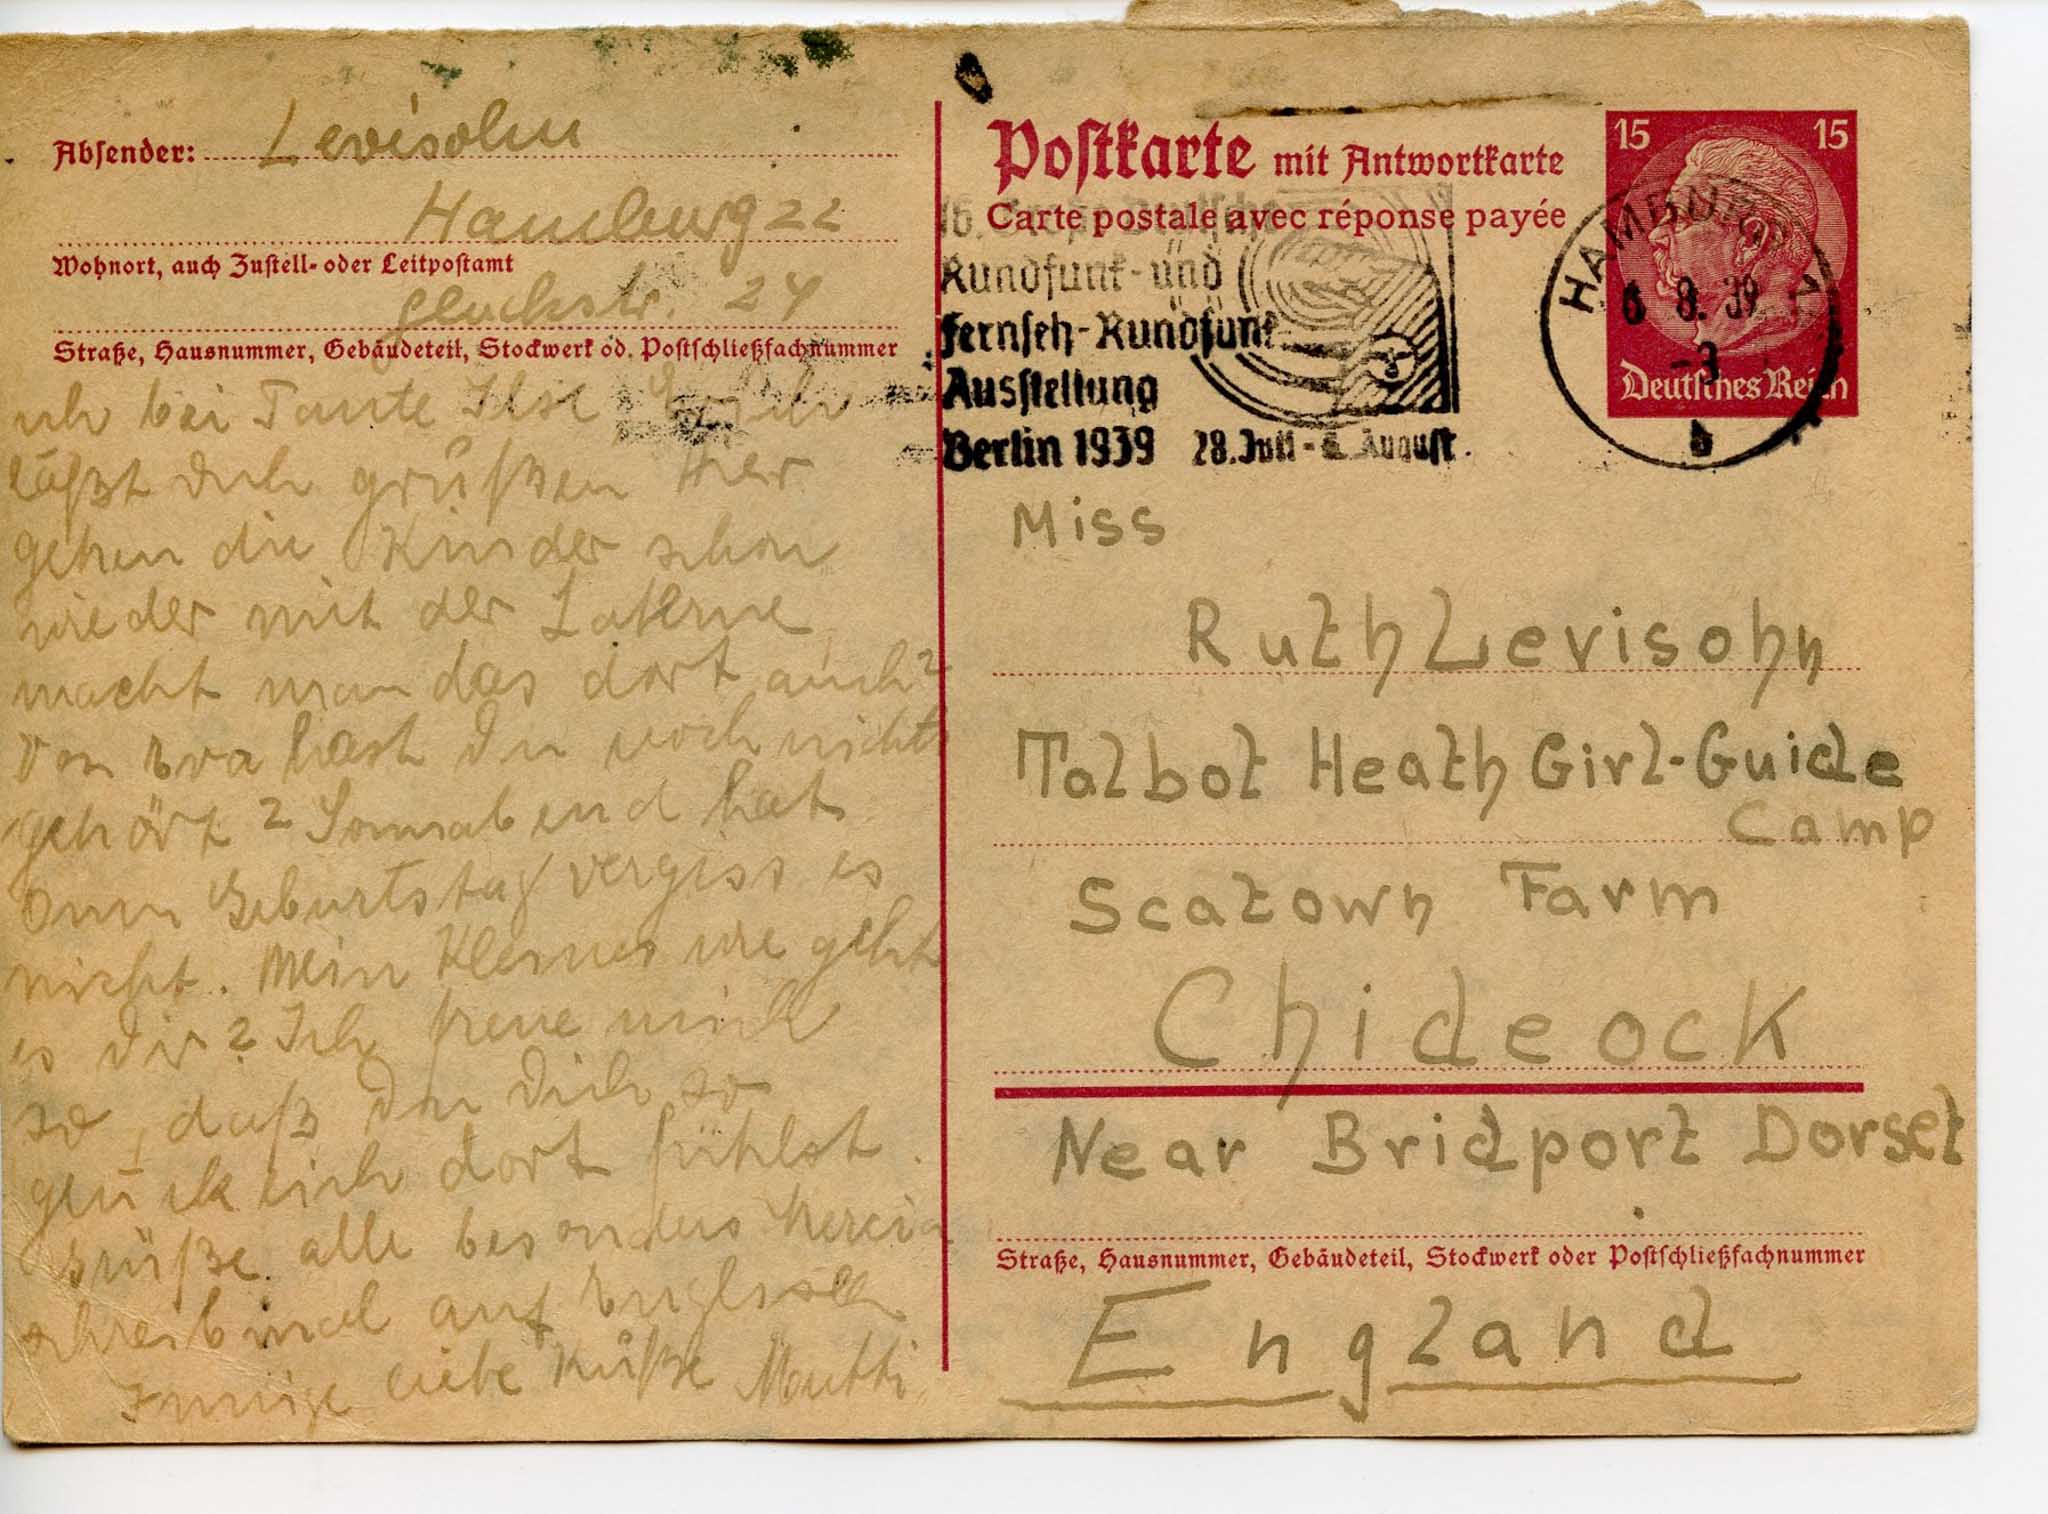 Absender: Levisohn
Hamburg 22
Wohnort, auch Zustell- oder Leitpostamt
Gluckstr. 24
Straße, Hausnummer, Gebäudeteil, Stockwerk od. Postschließfachnummer
ich bei Tante Ilse
läßt dich grüßen Hier
gehen die Kinder schon
wieder mit der Laterne
macht man das dort auch?
Von Eva hast Du noch nichts
gehört? Sonnabend hat
Omi Geburtstag vergiss es
nicht. Mein Kleines wie geht
es dir? Ich freue mich
so, daß Du Dich so
glücklich dort fühlst.
Grüße alle besonders
schreib mal auf Englisch
Innige liebe Küße Mutti
Postkarte mit Antwortkarte
Carte postale avec réponse payée
15 15
Deutsches Reich
HAMBURG 1
6 8. 39
-3
b
16. Große Deutsche
Rundfunk- und
Fernseh-Rundfunk
Ausstellung
Berlin 1939 28. Juli - 6. August
Miss
Ruth Levisohn
Talbot Heath Girl-Guide
Camp
Seatown Farm
Chideock
Near Bridport Dorset
Straße, Hausnummer, Gebäudeteil, Stockwerk oder Postschließfachnummer
England